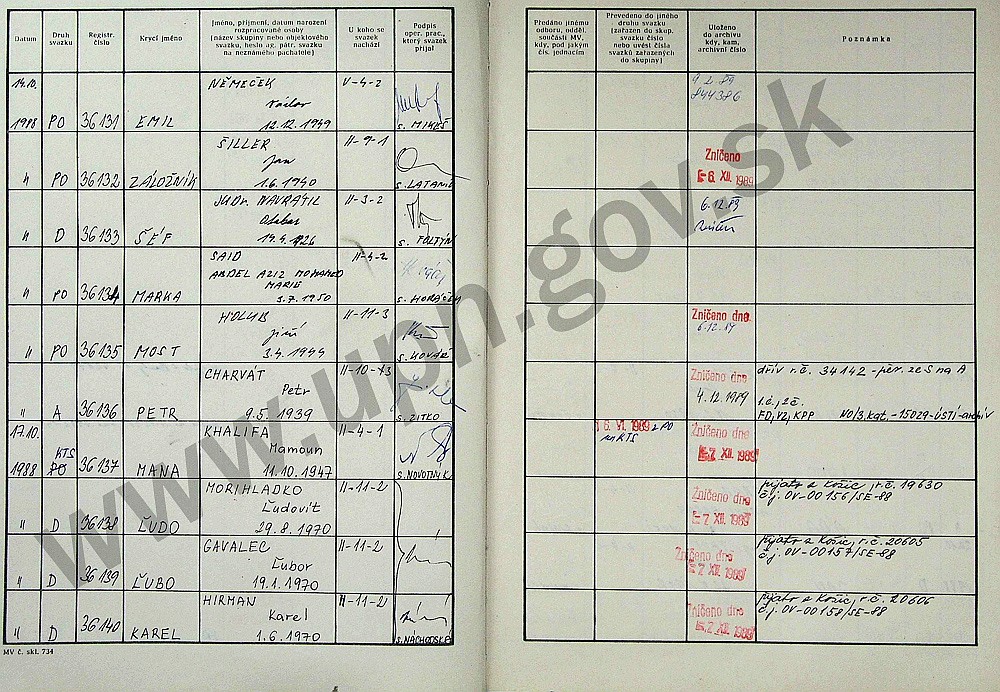 Datum
Druh svazku
Registr. číslo
Krycí jméno
Jméno, příjmení, datum narození
rozpracované osoby
(název skupiny nebo objektového
svazku, heslo ag. pátr. svazku
na neznámého pachatele)
U koho se
svazek
nachází
Podpis
oper. prac.,
který svazek
přijal
Předáno jinému
odboru, odděl.
součásti MV,
kdy, pod jakým
čís. jednacím
Převedeno do jiného
druhu svazku
(zařazen do skup.
svazku číslo
nebo uvést čísla
svazků zařazených
do skupiny)
Uloženo
do archivu
kdy, kam,
archivní číslo
Poznámka
14.10. NĚMEČEK V-4-2 9.2.89
Václav 844386
1988 PO 36131 EMIL 12.12.1949 s. MIKEŠ
ŠILLER II-9-1 Zničeno
Jan -6. XII. 1989
" PO 36132 ZÁLOŽNÍK 1.6.1940
JUDr. NAVRÁTIL II-3-2 6.12.89
" D 36133 ŠÉF 14.4.1926 s. FOLTÝN
SAID II-4-2
ABDEL AZIZ MOHAMED
MARIE
" PO 36134 MARKA 3.7.1950 s. HORÁČEK
HOLUB II-11-3 Zničeno dne
Jiří 6.12.89
" PO 36135 MOST 3.4.1944 s. KOVÁŘ
CHARVÁT II-10-13 Zničeno dne dřív r.č. 34142 - pěr. ze S na A
Petr 4.12.1989 1.č., 2č.
" A 36136 PETR 9.5.1939 s. ZITKO FD, YZ, KPP NO/3.kat, -15029-ÚSTÍ-archiv
17.10. KHALIFA II-4-1 16. VI. 1989 z PO Zničeno dne
KTS Mamoun na KTS -7. XII. 1989
1988 PO 36137 MANA 11.10.1947 s. NOVOTNÝ K.
MORIHLADKO II-11-2 Zničeno dne přijato z Košic, r.č. 19630
Ľudovít -7. XII. 1989 č.j. OV-00156/SE-88
" D 36138 ĽUDO 29.8.1970
GAVALEC II-11-2 Zničeno dne přijato z Košic, r.č. 20605
Ľubor -7. XII. 1989 č.j. OV-00157/SE-88
" D 36139 ĽUBO 19.1.1970
HIRMAN II-11-2 Zničeno dne přijato z Košic, r.č. 20606
Karel -7. XII. 1989 č.j. OV-00158/SE-88
" D 36140 KAREL 1.6.1970 s. NÁCHODSKÁ
MV č. skl. 734
www.upn.gov.sk